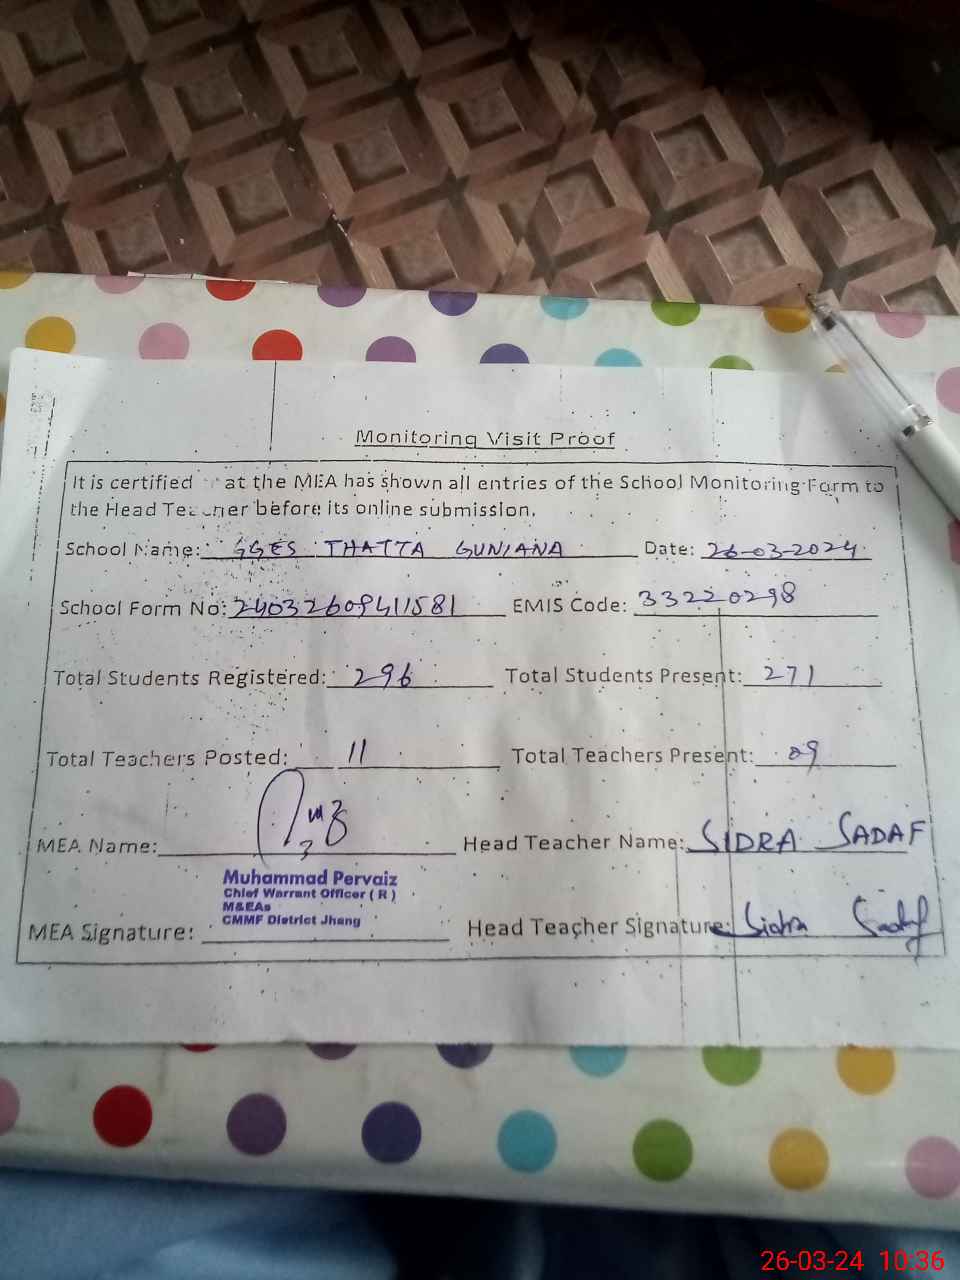 Monitoring Visit Proof
It is certified at the MEA has shown all entries of the School Monitoring Form to
the Head Teacher before its online submission.
School Name: GGES THATTA GUNIANA Date: 26-03-2024
School Form No: 24032609411581 EMIS Code: 33220298
Total Students Registered: 296 Total Students Present: 271
Total Teachers Posted: 11 Total Teachers Present: 09
MEA Name: Head Teacher Name: SIDRA SADAF
Muhammad Pervaiz
Chief Warrant Officer ( R )
M&EAs
CMMF District Jhang
MEA Signature: Head Teacher Signature: Sidra Sadaf
26-03-24 10:36